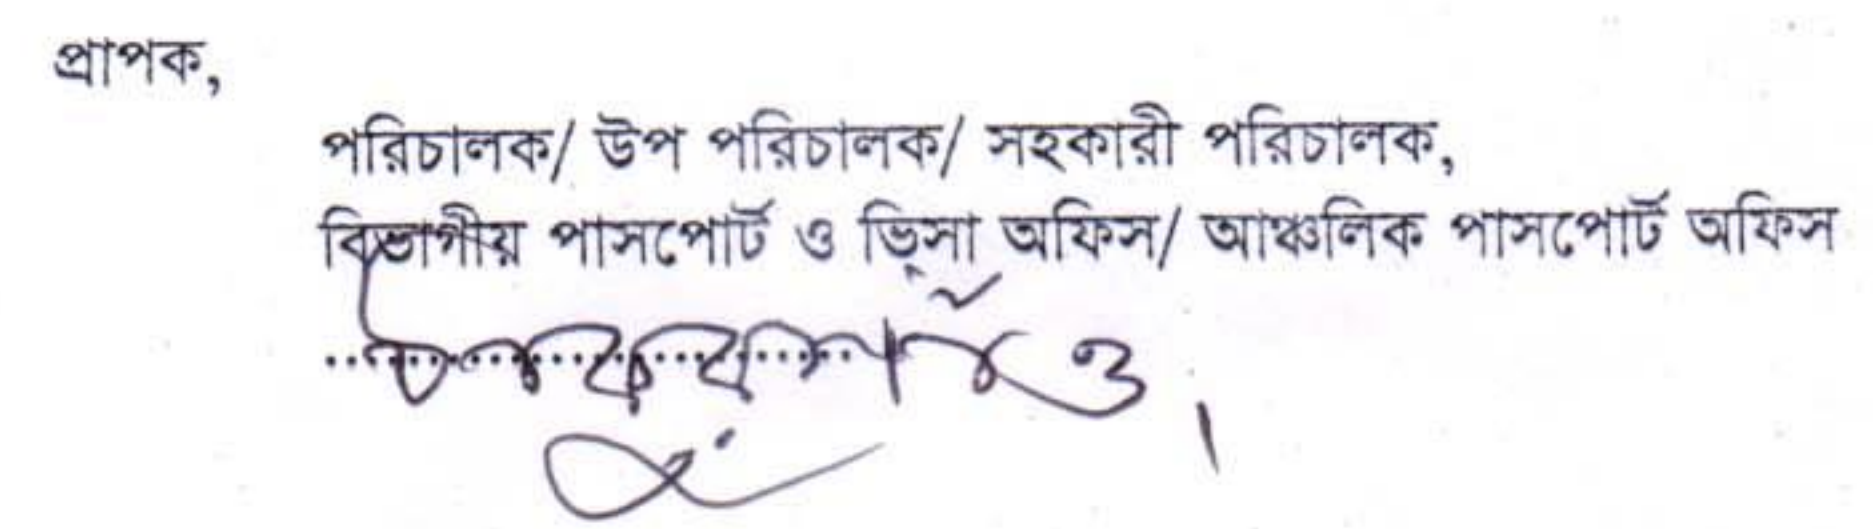 প্রাপক,
পরিচালক/ উপ পরিচালক/ সহকারী পরিচালক,
বিভাগীয় পাসপোর্ট ও ভিসা অফিস/ আঞ্চলিক পাসপোর্ট অফিস